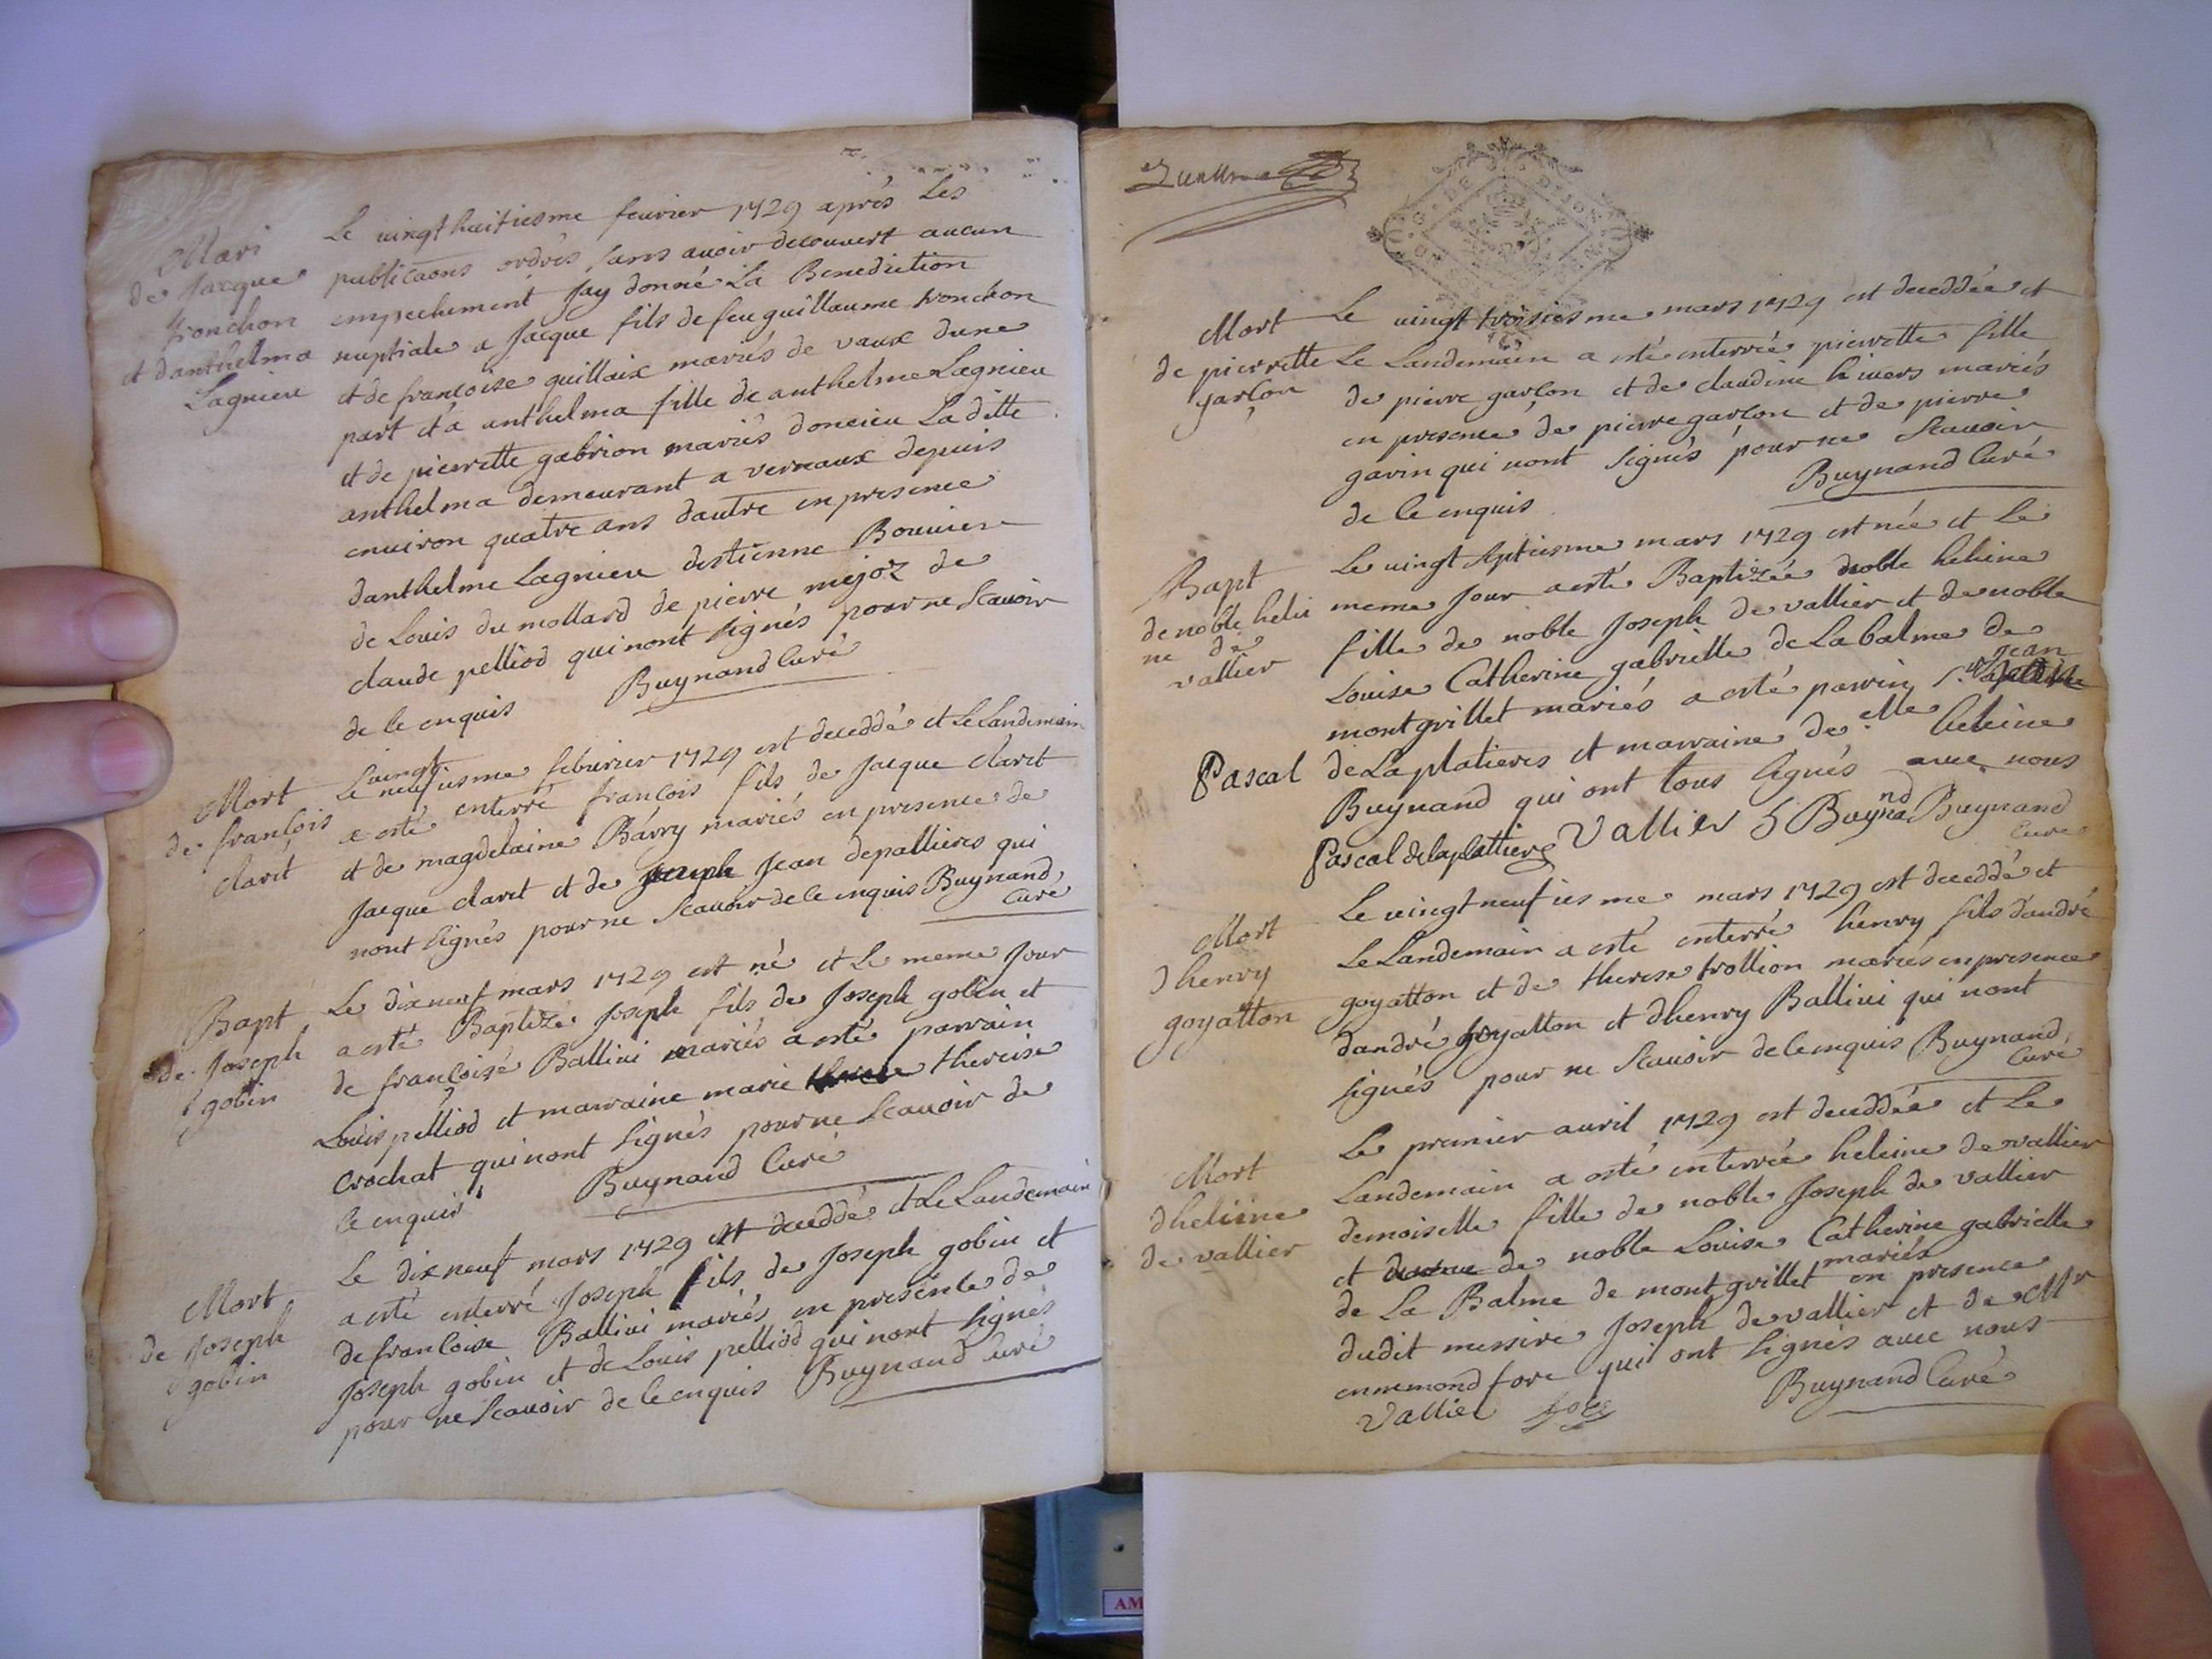 Mari
de Jacque
tronchon
et danthelma
Lagnieu
Le vingt huitiesme feurier 1729 aprés Les
publicaons ordrés sans auoir decouuert aucun
empechement Jay donné La Benediction
nuptiale a Jacque fils de feu guillaume tronchon
et de francoise guillaix mariés de vaux dune
part et a anthelma fille de anthelme Lagnieu
et de pierrette gabrion mariés doncieu La ditte
anthelma demeurant a vernaux depuis
enuiron quatre ans dautre en presence
danthelme Lagnieu destienne Bouuier
de Louis du mollard de pierre mejoz de
claude pelliod qui nont signés pour ne scauoir
de ce enquis Buynand Curé
Mort
de françois
claret
Le vingt neufiesme feburier 1729 est deceddé et Le Landemain
a esté enterré françois fils de Jacque claret
et de magdelaine Barry mariés en presence de
Jacque claret et de Jean depallieres qui
nont signés pour ne scauoir de ce enquis Buynand
Curé
Bapt
de Joseph
gobin
Le dix neuf mars 1729 est né et Le meme Jour
a esté Baptizé Joseph fils de Joseph gobin et
de françoise Ballini mariés a esté parrain
Louis pelliod et marraine marie thereise
Crochat qui nont signés pour ne scauoir de
ce enquis Buynand Curé
Mort
de Joseph
gobin
Le dix neuf mars 1729 est deceddé et Le Landemain
a esté enterré Joseph fils de Joseph gobin et
de francoise Ballini mariés en presence de
Joseph gobin et de Louis pelliod qui nont signés
pour ne scauoir de ce enquis Buynand curé
G. DE DIJON
Mort
de pierrette
garçon
Le vingt troisiesme mars 1729 est deceddée et
Le Landemain a esté enterrée pierrette fille
de pierre garçon et de claudine hiuers mariés
en presence de pierre garçon et de pierre
gavin qui nont signés pour ne scauoir
de ce enquis Buynand Curé
Bapt
de noble helei
ne de
vallier
Le vingt septiesme mars 1729 est née et Le
meme Jour a esté Baptizée noble heleine
fille de noble Joseph de vallier et de noble
Louise Catherine gabrielle de La balme de
montgrillet mariés a esté parrin Sr Jean
Pascal de La platieres et marraine de.elle heleine
Buynand qui ont tous signés auec nous
Pascal delaplattiere Vallier h Buynand Buynand
Curé
Mort
dhenry
goyatton
Le vingt neufiesme mars 1729 est deceddé et
Le Landemain a esté enterré henry fils d'andré
goyatton et de therese trollion mariés en presence
dandré goyatton et dhenry Ballini qui nont
signés pour ne scauoir de ce enquis Buynand
Curé
Mort
dheleine
de vallier
Le premier auril 1729 est deceddée et Le
Landemain a esté enterrée heleine de vallier
demoiselle fille de noble Joseph de vallier
et de noble Louise Catherine gabrielle
de La Balme de montgrillet mariés en presence
dudit messire Joseph de vallier et de Mr
ennemond fore qui ont signés auec nous
Vallier fore Buynand Curé